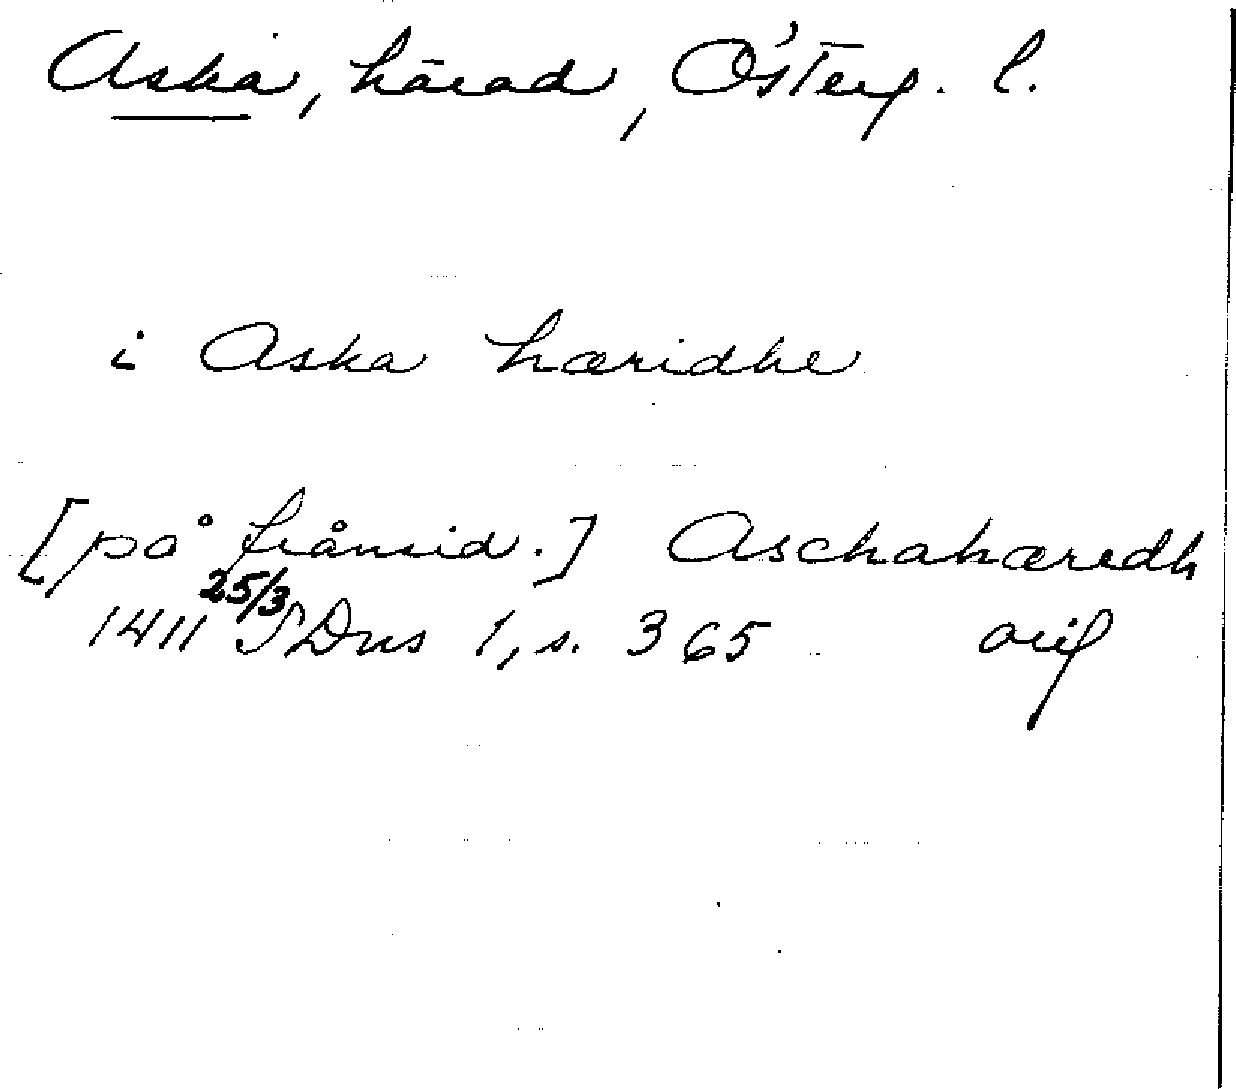 Aska, härad, Österg. l.
i Aska hæridhe
[på frånsid.] Aschahæredh
1411 25/3 SDns 1, s. 365 orig